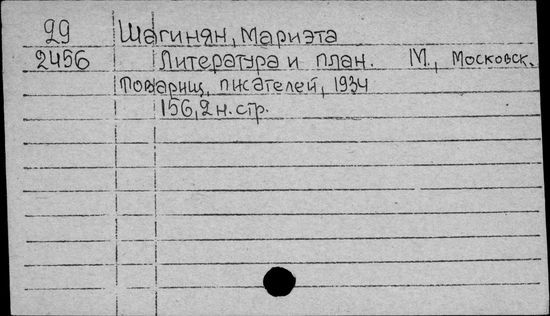 99 Шагинян, Мариэта
2456 Литература и план. М., Московск.
Товарищ. писателей, 1934
156, 2 н. стр.